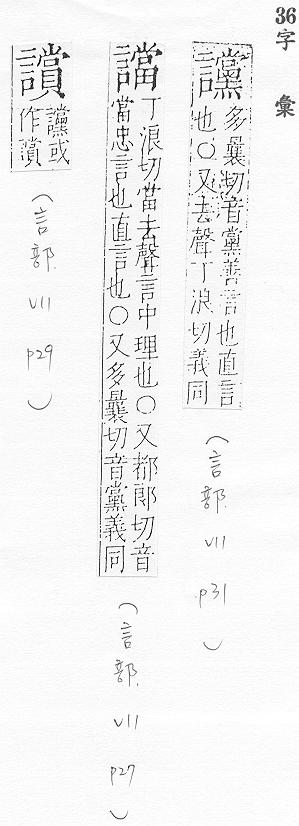 36字 彙
讜 多曩切音黨善言也直言
也○又去聲丁浪切義同
(言部 VII P31)
譡 丁浪切當去聲言中理也○又都郎切音
當忠言也直言也○又多曩切音黨義同
(言部 VII P27)
讜或
作
(言部 VII P29)